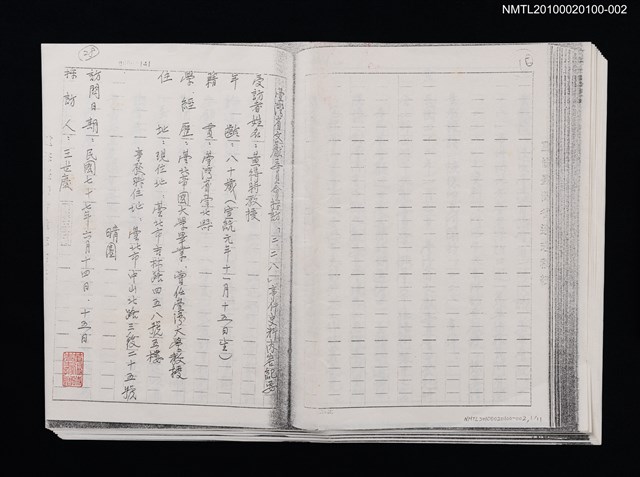 NMTL20100020100-002
臺灣省文獻委員會採訪「二二八」事件史料內容紀要
受訪者姓名：黃得時教授
年齡：八十歲（宣統元年十一月十五日生）
籍貫：臺灣省臺北縣
學經歷：臺北帝國大學畢業、曾任臺灣大學教授
住址：現住地、臺北市吉林路四五八號五樓
事發時住址、臺北市中山北路三段二十五號
晴園
訪問日期：民國七十七年六月十四日、十五日
採訪人：王世慶
NMTL20100020100-002